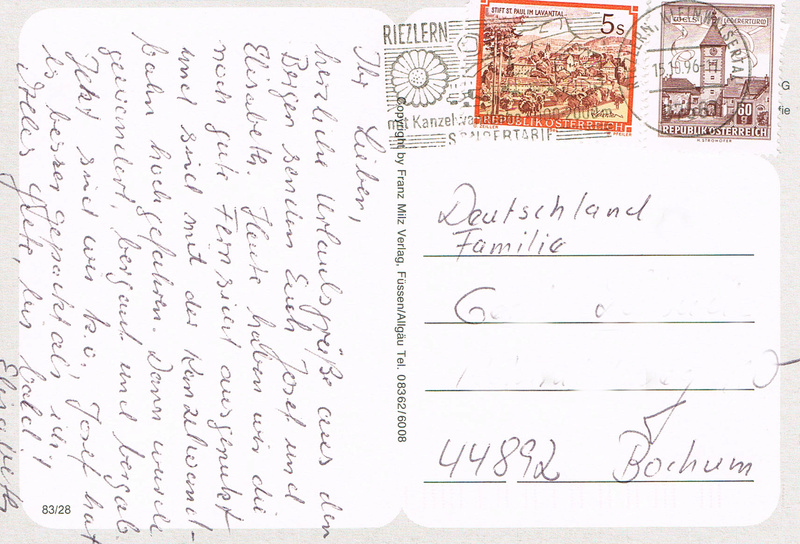 Ihr Lieben,
herzliche Urlaubsgrüße aus den
Bergen senden Euch Josef und
Elisabeth. Heute haben wir die
noch gute Fernsicht ausgenutzt
und sind mit der Kanzelwand-
bahn hochgefahren. Dann wurde
gewandert, bergauf und bergab.
Jetzt sind wir k.o., Josef hat
es besser gepackt als ich!
Alles Gute, bis bald!
Elisabeth
83/28
Copyright by Franz Milz Verlag, Füssen/Allgäu Tel. 08362/6008
RIEZLERN
mit Kanzelwa
SONDERTARIF
STIFT ST. PAUL IM LAVANTTAL
5s
REPUBLIK ÖSTERREICH
O. ZEILLER
PFEILER
RIEZLERN, KLEINWALSERTAL
15.10.96-11
WELS LEDERERTURM
60 g
REPUBLIK ÖSTERREICH
H. STROHOFER
Deutschland
Familie
G
44892 Bochum